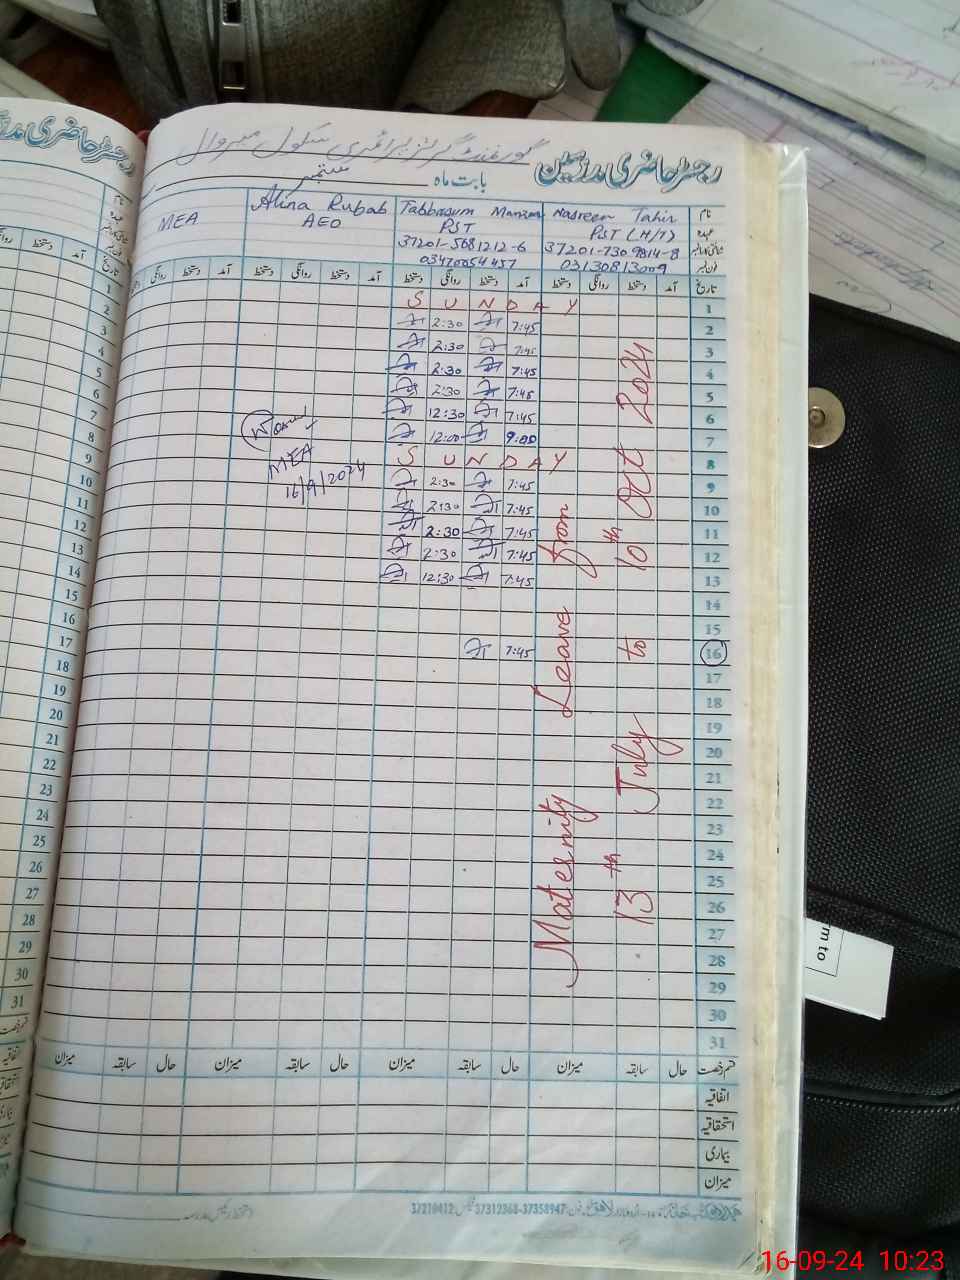 رجسٹر حاضری مدرسین گورنمنٹ گرلز پرائمری سکول میروال
بابت ماہ ستمبر
نام Nasreen Tahir Tabbasum Manzoor Alina Rubab MEA
عہدہ PST (H/T) PST AEO
37201-7309814-8 37201-5681212-6
فون نمبر 03130813009 03470054457
تاریخ آمد دستخط روانگی دستخط آمد دستخط روانگی دستخط آمد دستخط روانگی دستخط آمد دستخط روانگی
1 SUNDAY
2 7:45 2:30
3 7:45 2:30
4 7:45 2:30
5 7:45 2:30
6 7:45 12:30
7 9:00 12:00
8 SUNDAY
9 7:45 2:30
10 7:45 2:30
11 7:45 2:30
12 7:45 2:30
13 7:45 12:30
14
15
16 7:45
17
18
19
20
21
22
23
24
25
26
27
28
29
30
31
Maternity Leave from
13th July to 10th Oct 2024
MEA
16/9/2024
قسم رخصت حال سابقہ میزان حال سابقہ میزان حال سابقہ میزان حال سابقہ میزان
اتفاقیہ
استحقاقیہ
بیماری
میزان
37358947-37312368 37210412
دستخط رئیس مدرسہ
رجسٹر حاضری
نام
عہدہ
تاریخ آمد دستخط
1
2
3
4
5
6
7
8
9
10
11
12
13
14
15
16
17
18
19
20
21
22
23
24
25
26
27
28
29
30
31
rm to
16-09-24 10:23